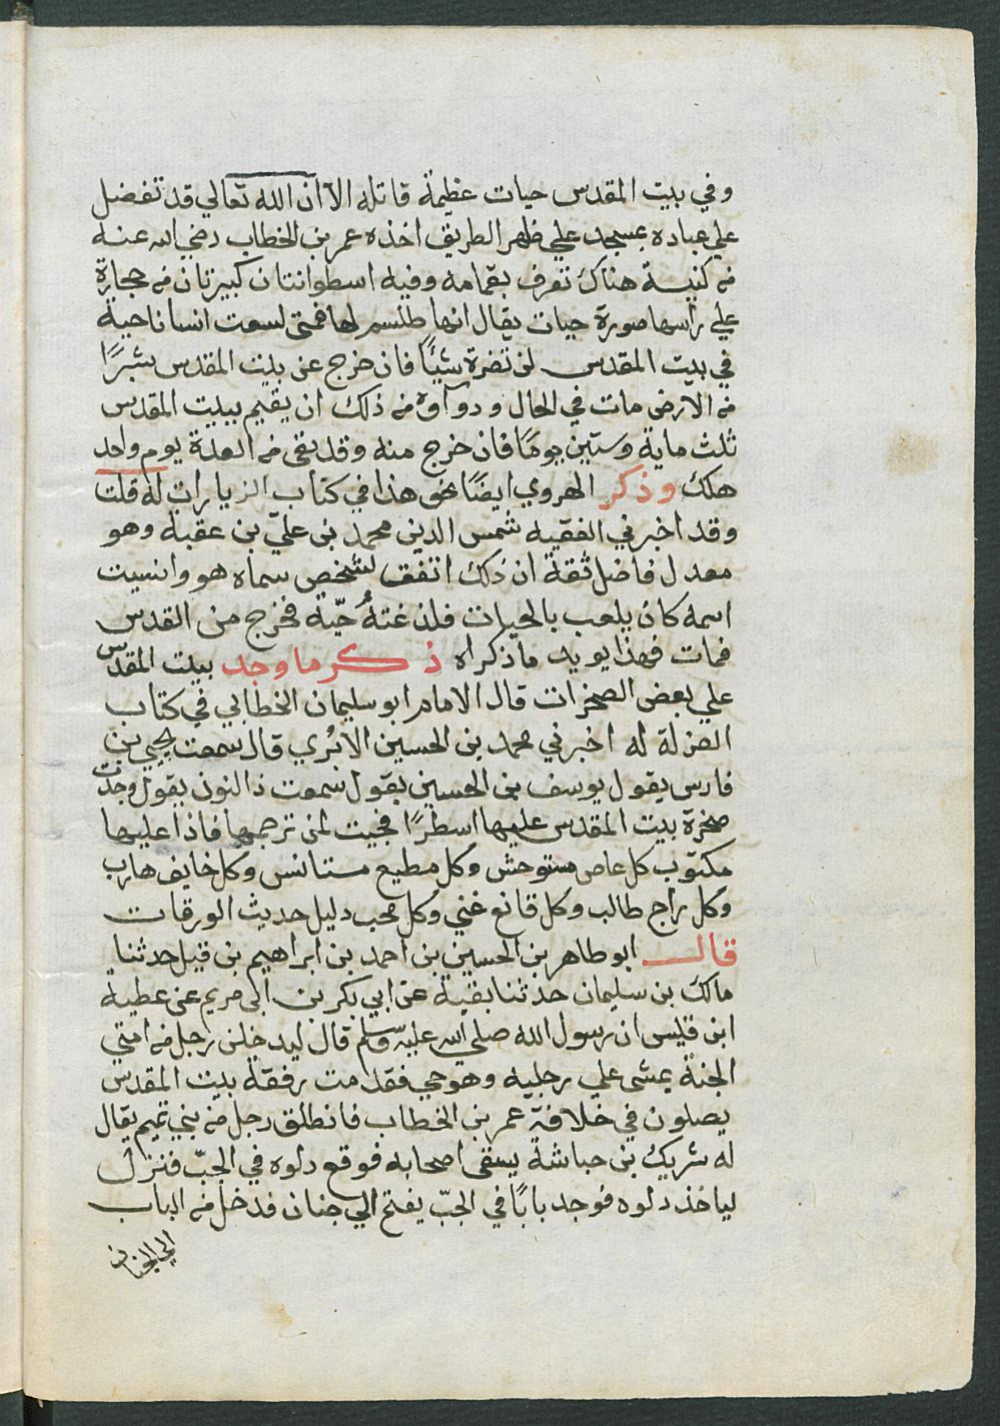 وفي بيت المقدس حيات عظيمة قاتله الا ان الله تعالي قد تفضل
علي عباده بمسجد علي ظهر الطريق اخذه عمر بن الخطاب رضي الله عنه
من كنيسة هناك تعرف بقمامه وفيه اسطوانتان كبيرتان من حجارة
علي راسها صورة حيات يقال انها طلسم لها فمتى لسعت انسانا حية
في بيت المقدس لن تضرة شيئًا فان خرج عن بيت المقدس شبرًا
من الارض مات في الحال ودواؤه من ذلك ان يقيم ببيت المقدس
ثلث ماية وستين يومًا فان خرج منه وقد بقى من العدة يوم واحد
هلك وذكر الهروي ايضًا نحو هذا في كتاب الزيارات له قلت
وقد اخبرني الفقيه شمس الدين محمد بن عليّ بن عقبة وهو
معدل فاضل ثقة ان ذلك اتفق لشخص سماه هو وانسيت
اسمه كان يلعب بالحيات فلدغتهُ حيّة فخرج من القدس
فمات فهذا يويد ما ذكراه ذكر ما وجد ببيت المقدس
علي بعض الصخرات قال الامام ابو سليمان الخطابي في كتاب
العزلة له اخبرني محمد بن الحسين الابُري قال سمعت يحيي بن
فارس يقول يوسف بن الحسين يقول سمعت ذا النون يقول وجدت
صخرة بيت المقدس عليها اسطرًا فجيت لمن ترجمها فاذا عليها
مكتوب كل عاص مستوحش وكل مطيع مستانس وكل خايف هارب
وكل راج طالب وكل قانع غني وكل محب دليل حديث الورقات
قال ابو طاهر بن الحسين بن احمد بن ابراهيم بن قيل حدثنا
مالك بن سليمان حدثنا بقية عن ابي بكر بن ابى مريم عن عطية
ابن قليس ان رسول الله صلي الله عليه وسلم قال ليدخلن رجل من امتي
الجنة يمشى علي رجليه وهو حي فقدمت رفقة بيت المقدس
يصلون في خلافة عمر بن الخطاب فانطلق رجل من بني تميم يقال
له شريك بن حباشة يسقى اصحابه فوقع دلوه في الجبّ فنزل
لياخذ دلوه فوجد بابًا في الجبّ يفتح الي جنان فدخل من الباب
الي الجنان